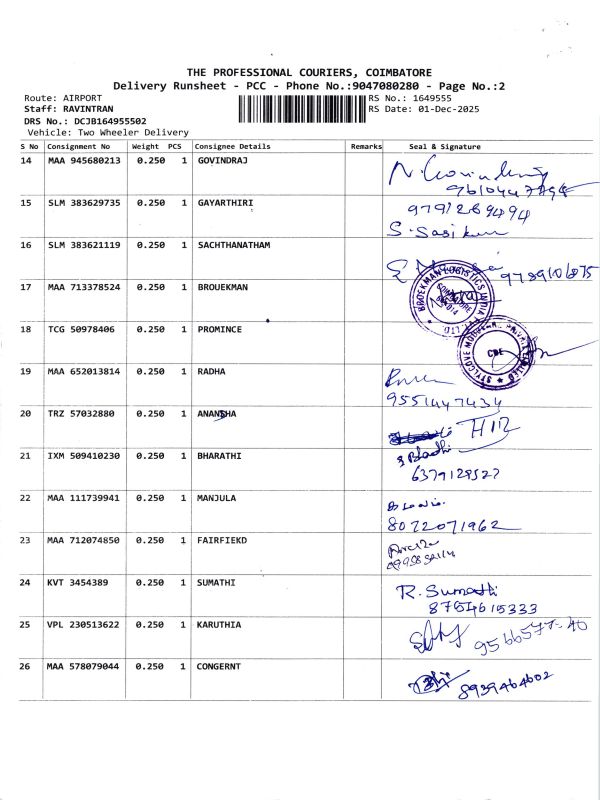 THE PROFESSIONAL COURIERS, COIMBATORE
Delivery Runsheet - PCC - Phone No.:9047080280 - Page No.:2
Route: AIRPORT RS No.: 1649555
Staff: RAVINTRAN RS Date: 01-Dec-2025
DRS No.: DCJB164955502
Vehicle: Two Wheeler Delivery
S No Consignment No Weight PCS Consignee Details Remarks Seal & Signature
14 MAA 945680213 0.250 1 GOVINDRAJ
15 SLM 383629735 0.250 1 GAYARTHIRI 9791269494
S. Sasi kum
16 SLM 383621119 0.250 1 SACHTHANATHAM
9789106875
17 MAA 713378524 0.250 1 BROUEKMAN BROEKMAN LOGISTICS INDIA
18 TCG 50978406 0.250 1 PROMINCE CBE
19 MAA 652013814 0.250 1 RADHA
9551447434
20 TRZ 57032880 0.250 1 ANANSHA
21 IXM 509410230 0.250 1 BHARATHI
6379128527
22 MAA 111739941 0.250 1 MANJULA
8072071962
23 MAA 712074850 0.250 1 FAIRFIEKD
24 KVT 3454389 0.250 1 SUMATHI R. Sumathi
8754615333
25 VPL 230513622 0.250 1 KARUTHIA
26 MAA 578079044 0.250 1 CONGERNT 8939464602